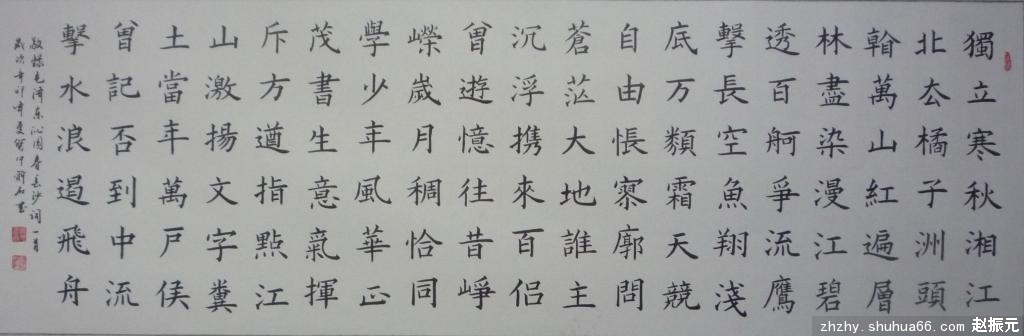 獨立寒秋湘江
北厺橘子洲頭
翰萬山紅遍層
林盡染漫江碧
透百舸爭流鷹
擊長空魚翔淺
底万類霜天競
自由悵寥廓問
蒼茫大地誰主
沉浮携來百侣
曾遊憶往昔崢
嶸歲月稠恰同
學少年風華正
茂書生意氣揮
斥方遒指點江
山激揚文字糞
土當年萬戶侯
曾記否到中流
擊水浪遏飛舟
敬録毛澤東沁園春長沙詞一首
歲次辛卯年夏
zhzhy.shuhua66.com 赵振元